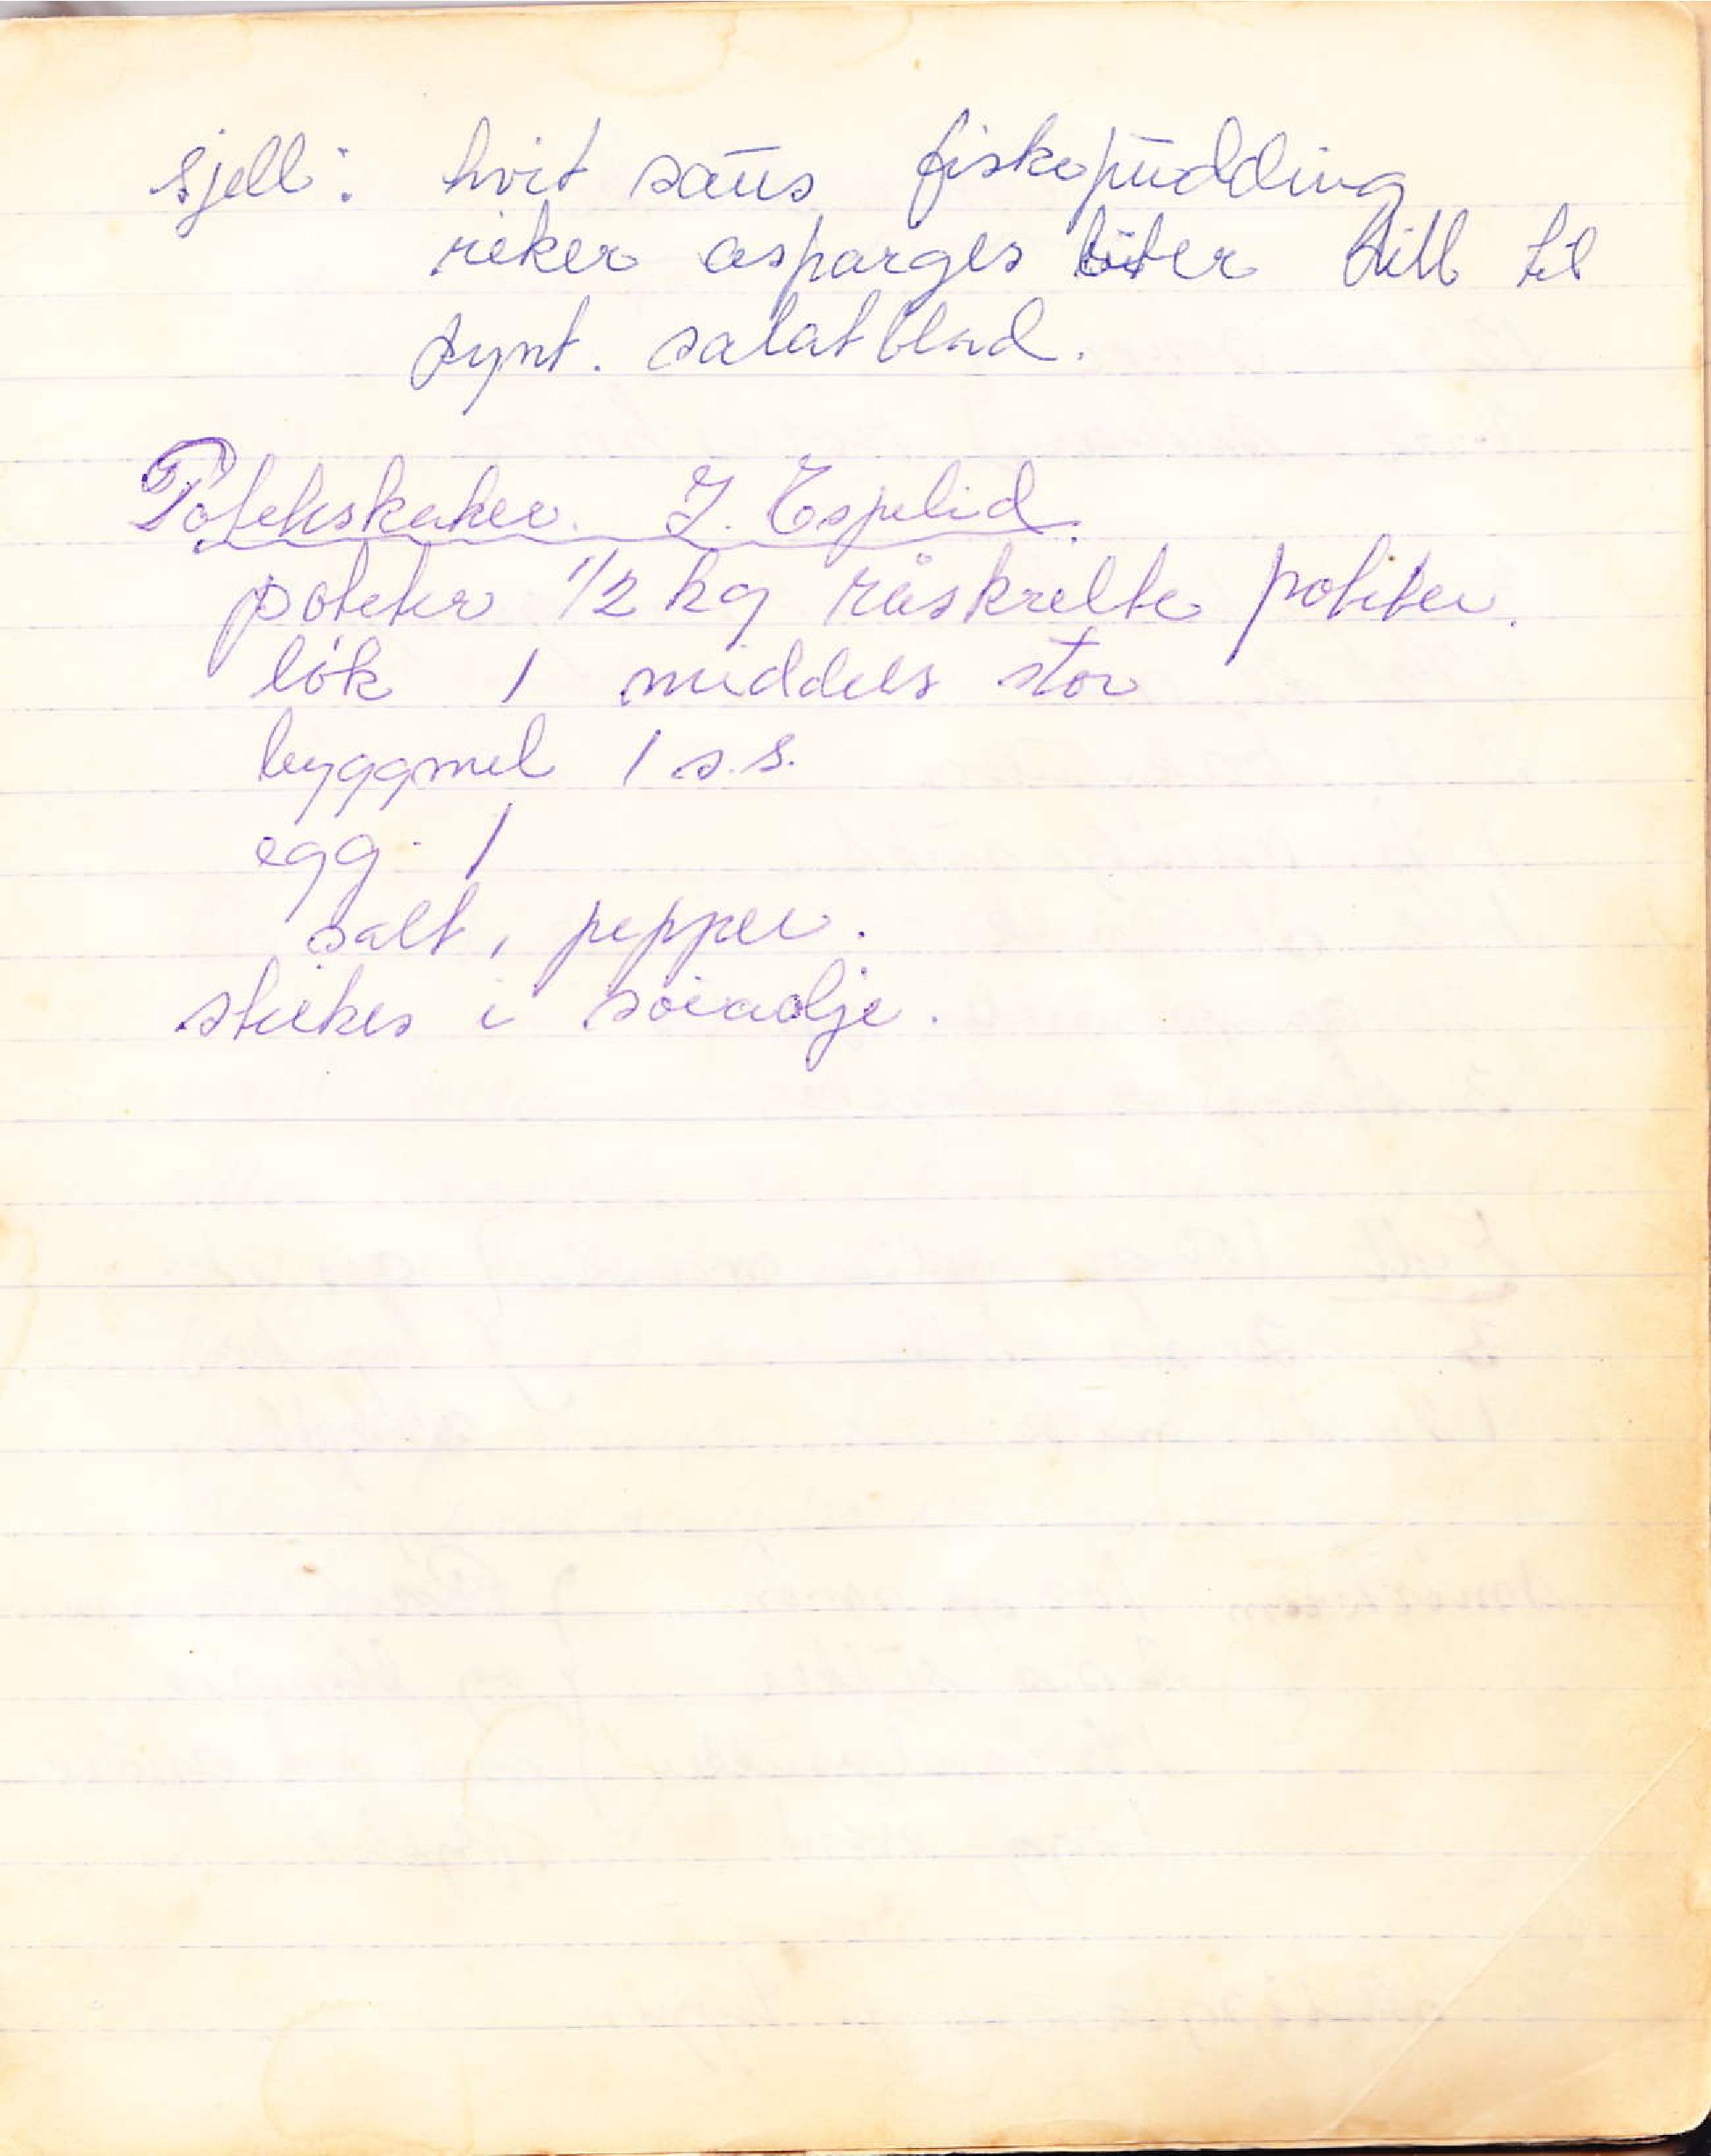 Fjell: hvit saus fiskepudding
reker asparges biter dill til
pynt. salatblad.
Potetkskaker. J. Espelid.
poteter 1/2 kg råskrelte poteter.
løk 1 middels stor
byggmel 1 s.s.
egg 1
salt, pepper.
stekes i soiaolje.